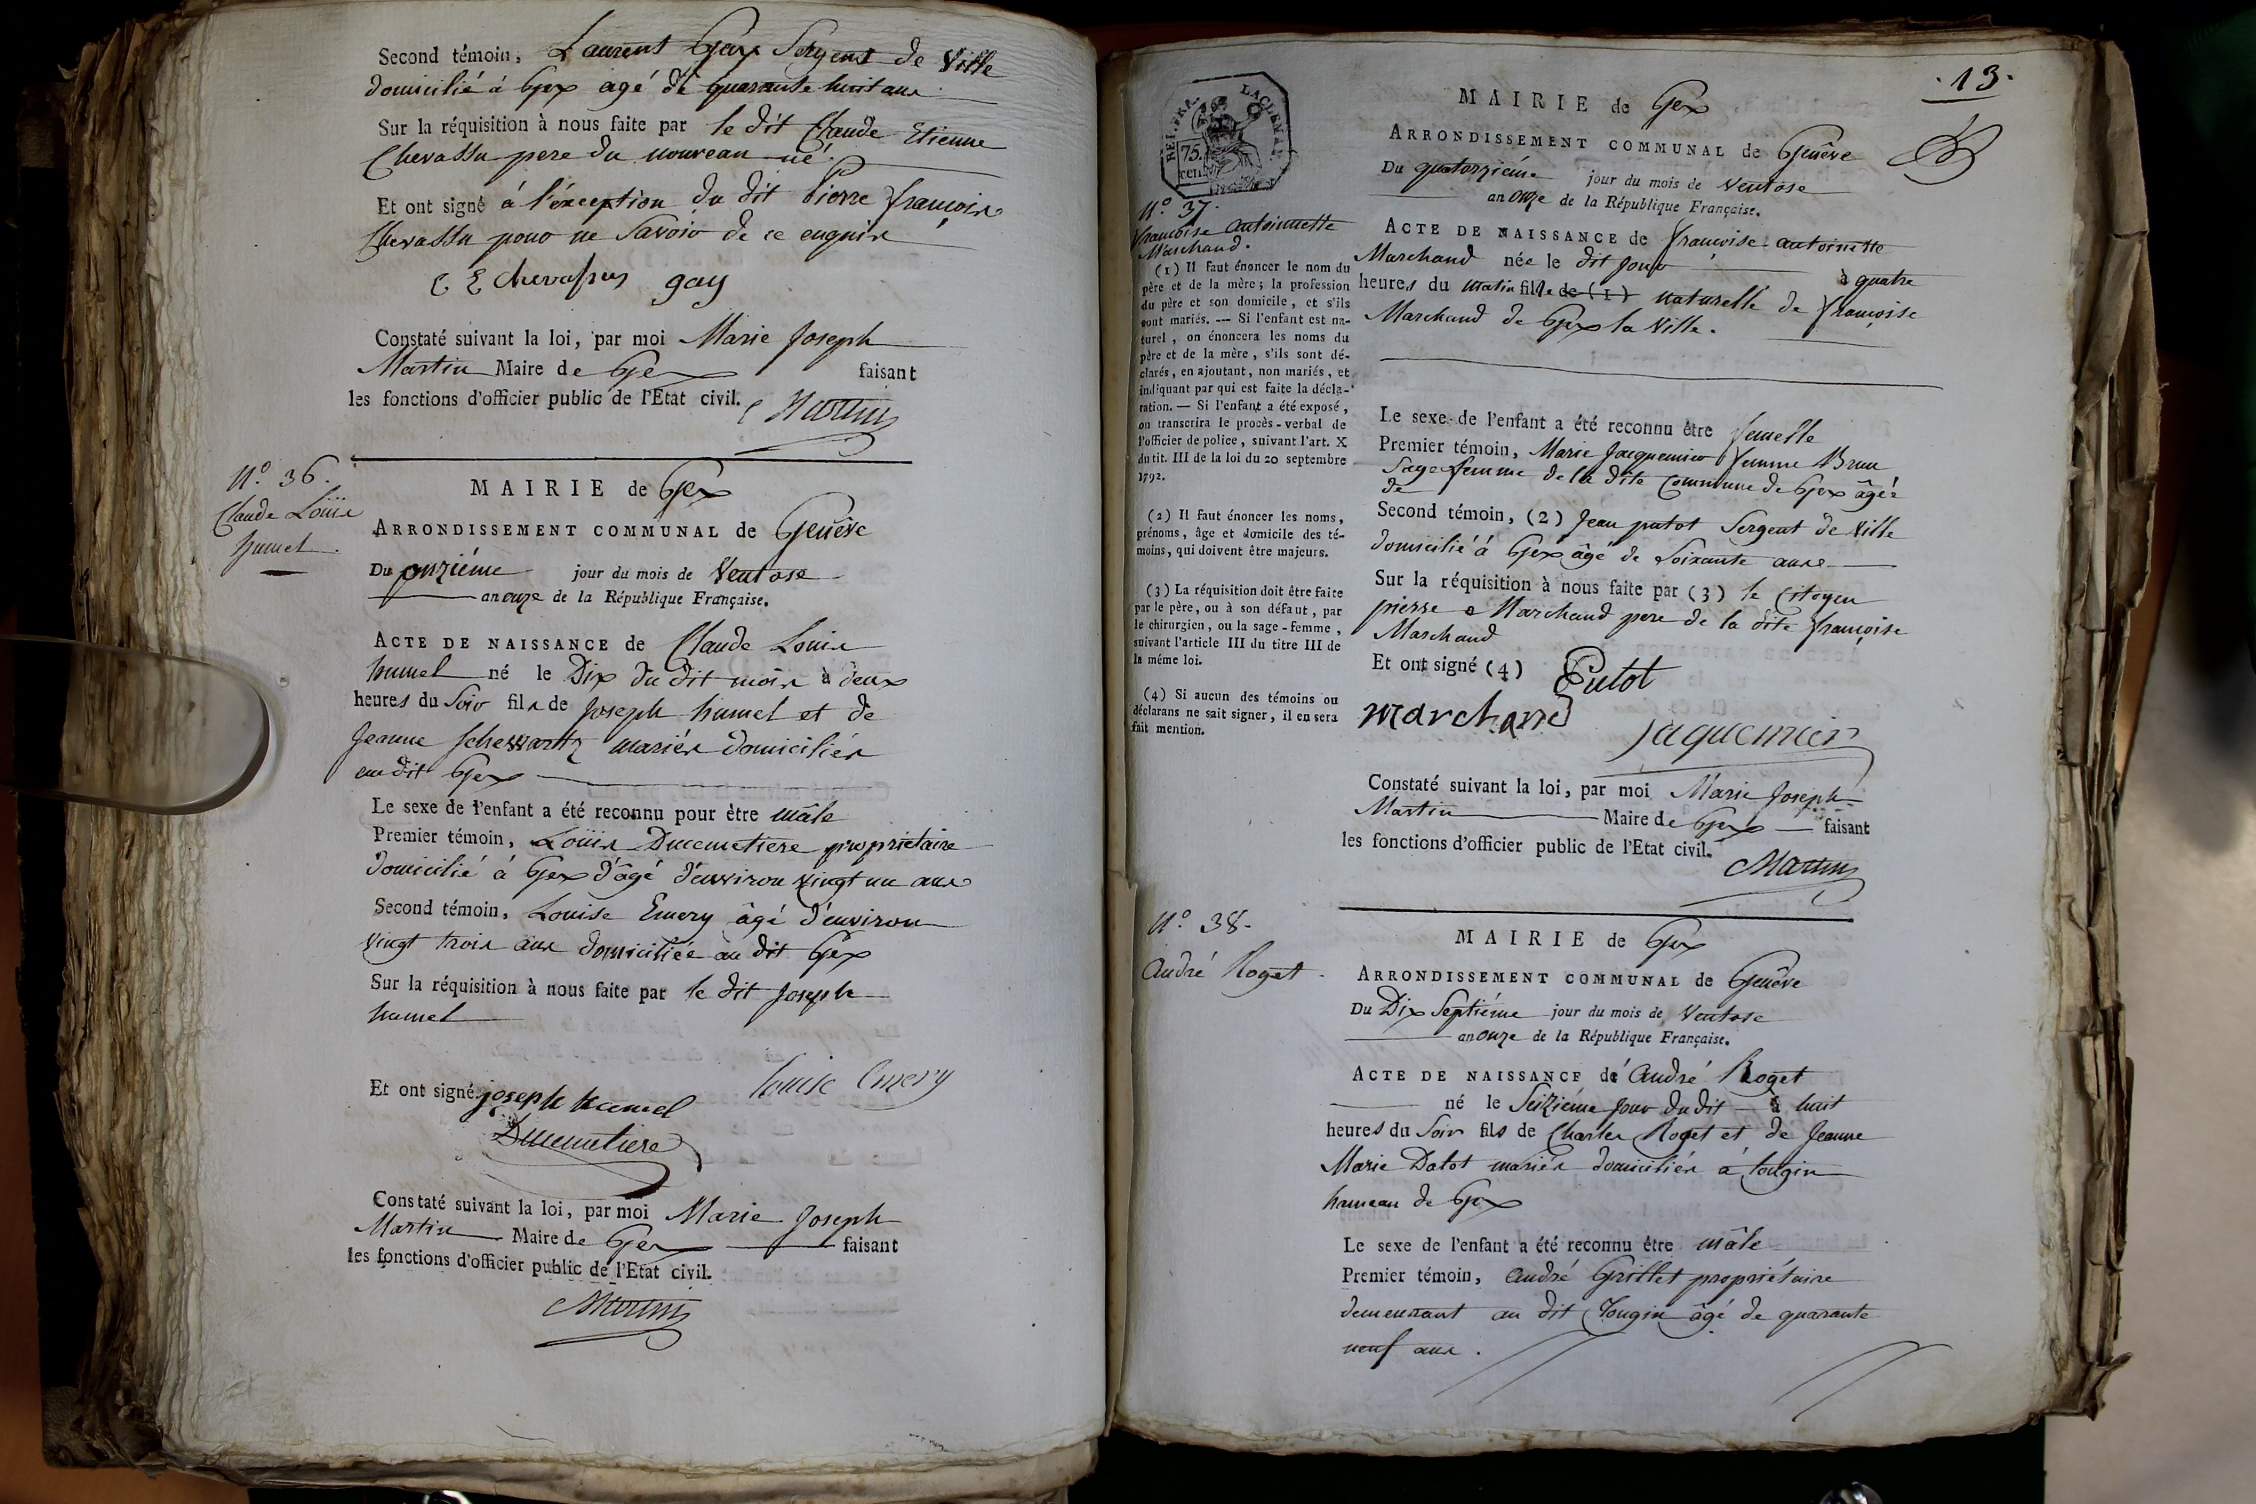 Second témoin, Laurent Gay Sergent de Ville
domicilié à Gex agé de quarante huit ans
Sur la réquisition à nous faite par le dit Claude Etienne
Chevassu pere du nouveau né.
Et ont signé à l'éxception du dit Pierre françois
Chevassu pour ne Savoir de ce enquis
C E Chevassus gay
Constaté suivant la loi, par moi Marie Joseph
Martin Maire de Gex faisant
les fonctions d'officier public de l'Etat civil. Martin
N.º 36.
Claude Louis
humel.
MAIRIE de Gex
ARRONDISSEMENT COMMUNAL de Genève
Du onzième jour du mois de Ventose
an onze de la République Française.
ACTE DE NAISSANCE de Claude Louis
humel né le Dix du dit mois à deux
heures du Soir fils de Joseph humel et de
Jeanne Schewartz mariés domiciliés
au dit Gex
Le sexe de l'enfant a été reconnu pour être mâle
Premier témoin, Louis Ducimetiere propriétaire
domicilié à Gex d'âgé d'environ vingt un ans
Second témoin, Louise Emery âgé d'environ
vingt trois ans domiciliée au dit Gex
Sur la réquisition à nous faite par le dit Joseph
humel
Et ont signé joseph humel Louise Emery
Ducimetiere
Constaté suivant la loi, par moi Marie Joseph
Martin Maire de Gex faisant
les fonctions d'officier public de l'Etat civil.
Martin
.13.
REP. FRA.
75.
cen
N.º 37.
françoise antoinette
Marchand.
(1) Il faut énoncer le nom du
père et de la mère; la profession
du père et son domicile, et s'ils
sont mariés. — Si l'enfant est na-
turel, on énoncera les noms du
père et de la mère, s'ils sont dé-
clarés, en ajoutant, non mariés, et
indiquant par qui est faite la décla-
ration. — Si l'enfant a été exposé,
on transcrira le procès-verbal de
l'officier de police, suivant l'art. X
du tit. III de la loi du 20 septembre
1792.
(2) Il faut énoncer les noms,
prénoms, âge et domicile des té-
moins, qui doivent être majeurs.
(3) La réquisition doit être faite
par le père, ou à son défaut, par
le chirurgien, ou la sage-femme,
suivant l'article III du titre III de
la même loi.
(4) Si aucun des témoins ou
déclarans ne sait signer, il en sera
fait mention.
MAIRIE de Gex
ARRONDISSEMENT COMMUNAL de Genève
Du quatorzième jour du mois de Ventose
an onze de la République Française.
ACTE DE NAISSANCE de françoise antoinette
Marchand née le dit jour à quatre
heures du matin fille de (1) naturelle de françoise
Marchand de Gex la Ville.
Le sexe de l'enfant a été reconnu être femelle
Premier témoin, Marie Jacquemier femme Brun
Sage femme de la dite Commune de Gex âgée
de
Second témoin, (2) Jean putot Sergent de Ville
domicilié à Gex âgé de Soixante ans
Sur la réquisition à nous faite par (3) le Citoyen
pierre Marchand pere de la dite françoise
Marchand
Et ont signé (4) Putot
marchand
jaquemier
Constaté suivant la loi, par moi Marie Joseph
Martin Maire de Gex faisant
les fonctions d'officier public de l'Etat civil.
Martin
N.º 38.
André Roget.
MAIRIE de Gex
ARRONDISSEMENT COMMUNAL de Genève
Du Dix Septième jour du mois de Ventose
an onze de la République Française.
ACTE DE NAISSANCE de André Roget
né le Seizième jour du dit à huit
heures du Soir fils de Charles Roget et de Jeanne
Marie Dalot mariés domiciliés à tougin
hameau de Gex
Le sexe de l'enfant a été reconnu être mâle
Premier témoin, André Grillet propriétaire
demeurant au dit Tougin âgé de quarante
neuf ans.